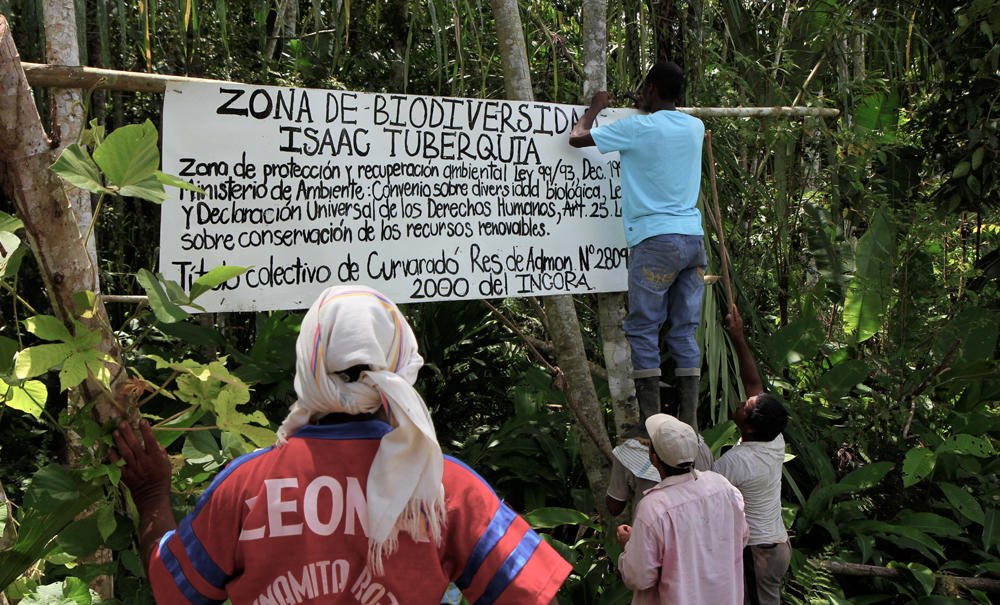 ZONA DE BIODIVERSIDA
ISAAC TUBERQUIA
Zona de protección y recuperación ambiental Ley 99/93, Dec. 19
Ministerio de Ambiente: Convenio sobre diversidad biológica, Le
Y Declaración Universal de los Derechos Humanos, Art. 25. L
sobre conservación de los recursos renovables.
Título colectivo de Curvaradó Res. de Admon. N° 2809
2000 del INCORA.
ZEON
INAMITA ROJ